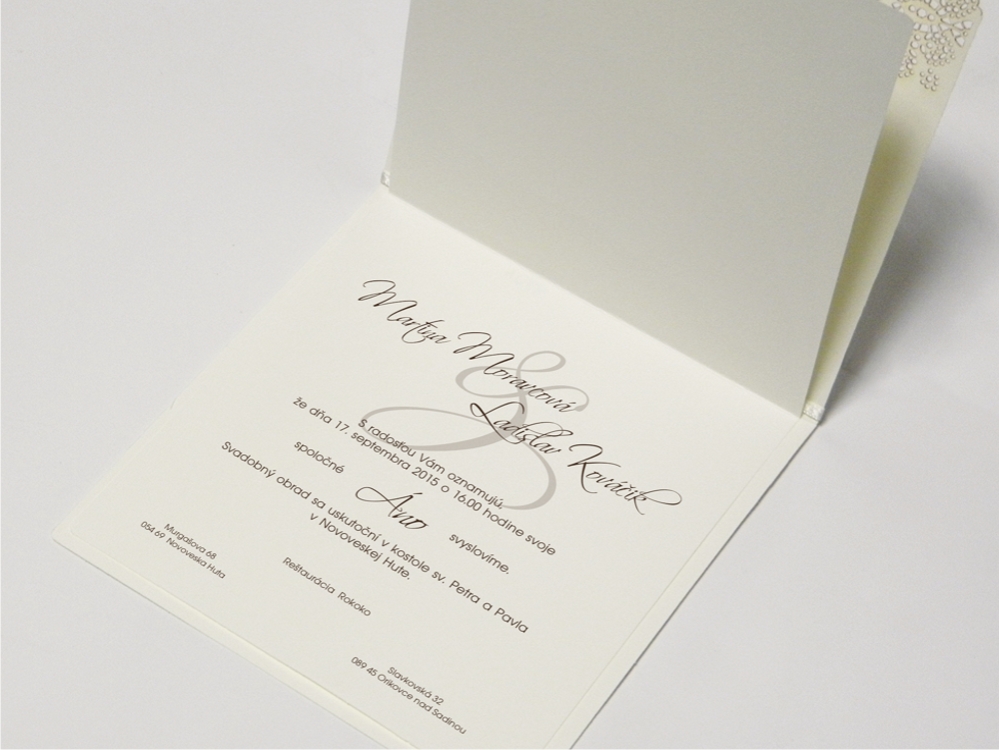 Martina Moravcová
&
Ladislav Kováčik
S radosťou Vám oznamujú,
že dňa 17. septembra 2015 o 16.00 hodine svoje
spoločné Áno svyslovíme.
Svadobný obrad sa uskutoční v kostole sv. Petra a Pavla
v Novoveskej Hute.
Murgašova 68
054 69 Novoveska Huta
Reštaurácia Rokoko
Slavkovská 32
089 45 Orikovce nad Sadinou